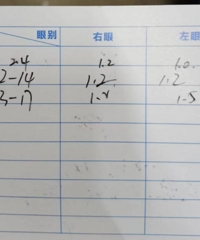 眼别 右眼 左眼
24 1.2 1.0
2-14 1.2 1.2
3-17 1.5